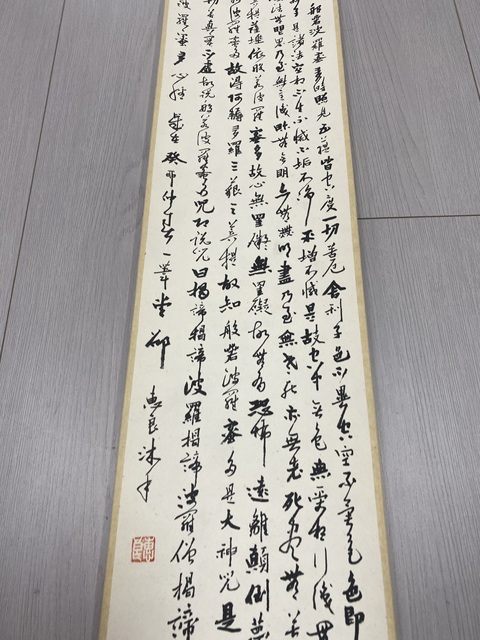 般若波羅蜜多時照見五蘊皆空度一切苦厄舍利子色不異空空不異色色即
是諸法空相不生不滅不垢不淨不增不減是故空中無色無受想行識無
法無眼界乃至無意識界無無明亦無無明盡乃至無老死亦無老死盡無苦
菩提薩埵依般若波羅蜜多故心無罣礙無罣礙故無有恐怖遠離顛倒夢
波羅蜜多故得阿耨多羅三藐三菩提故知般若波羅蜜多是大神咒是
切苦真實不虛故說般若波羅蜜多咒即說咒曰揭諦揭諦波羅揭諦波羅僧揭諦
波羅蜜多心經 歲在癸卯仲春 一葦堂
惠良沐手